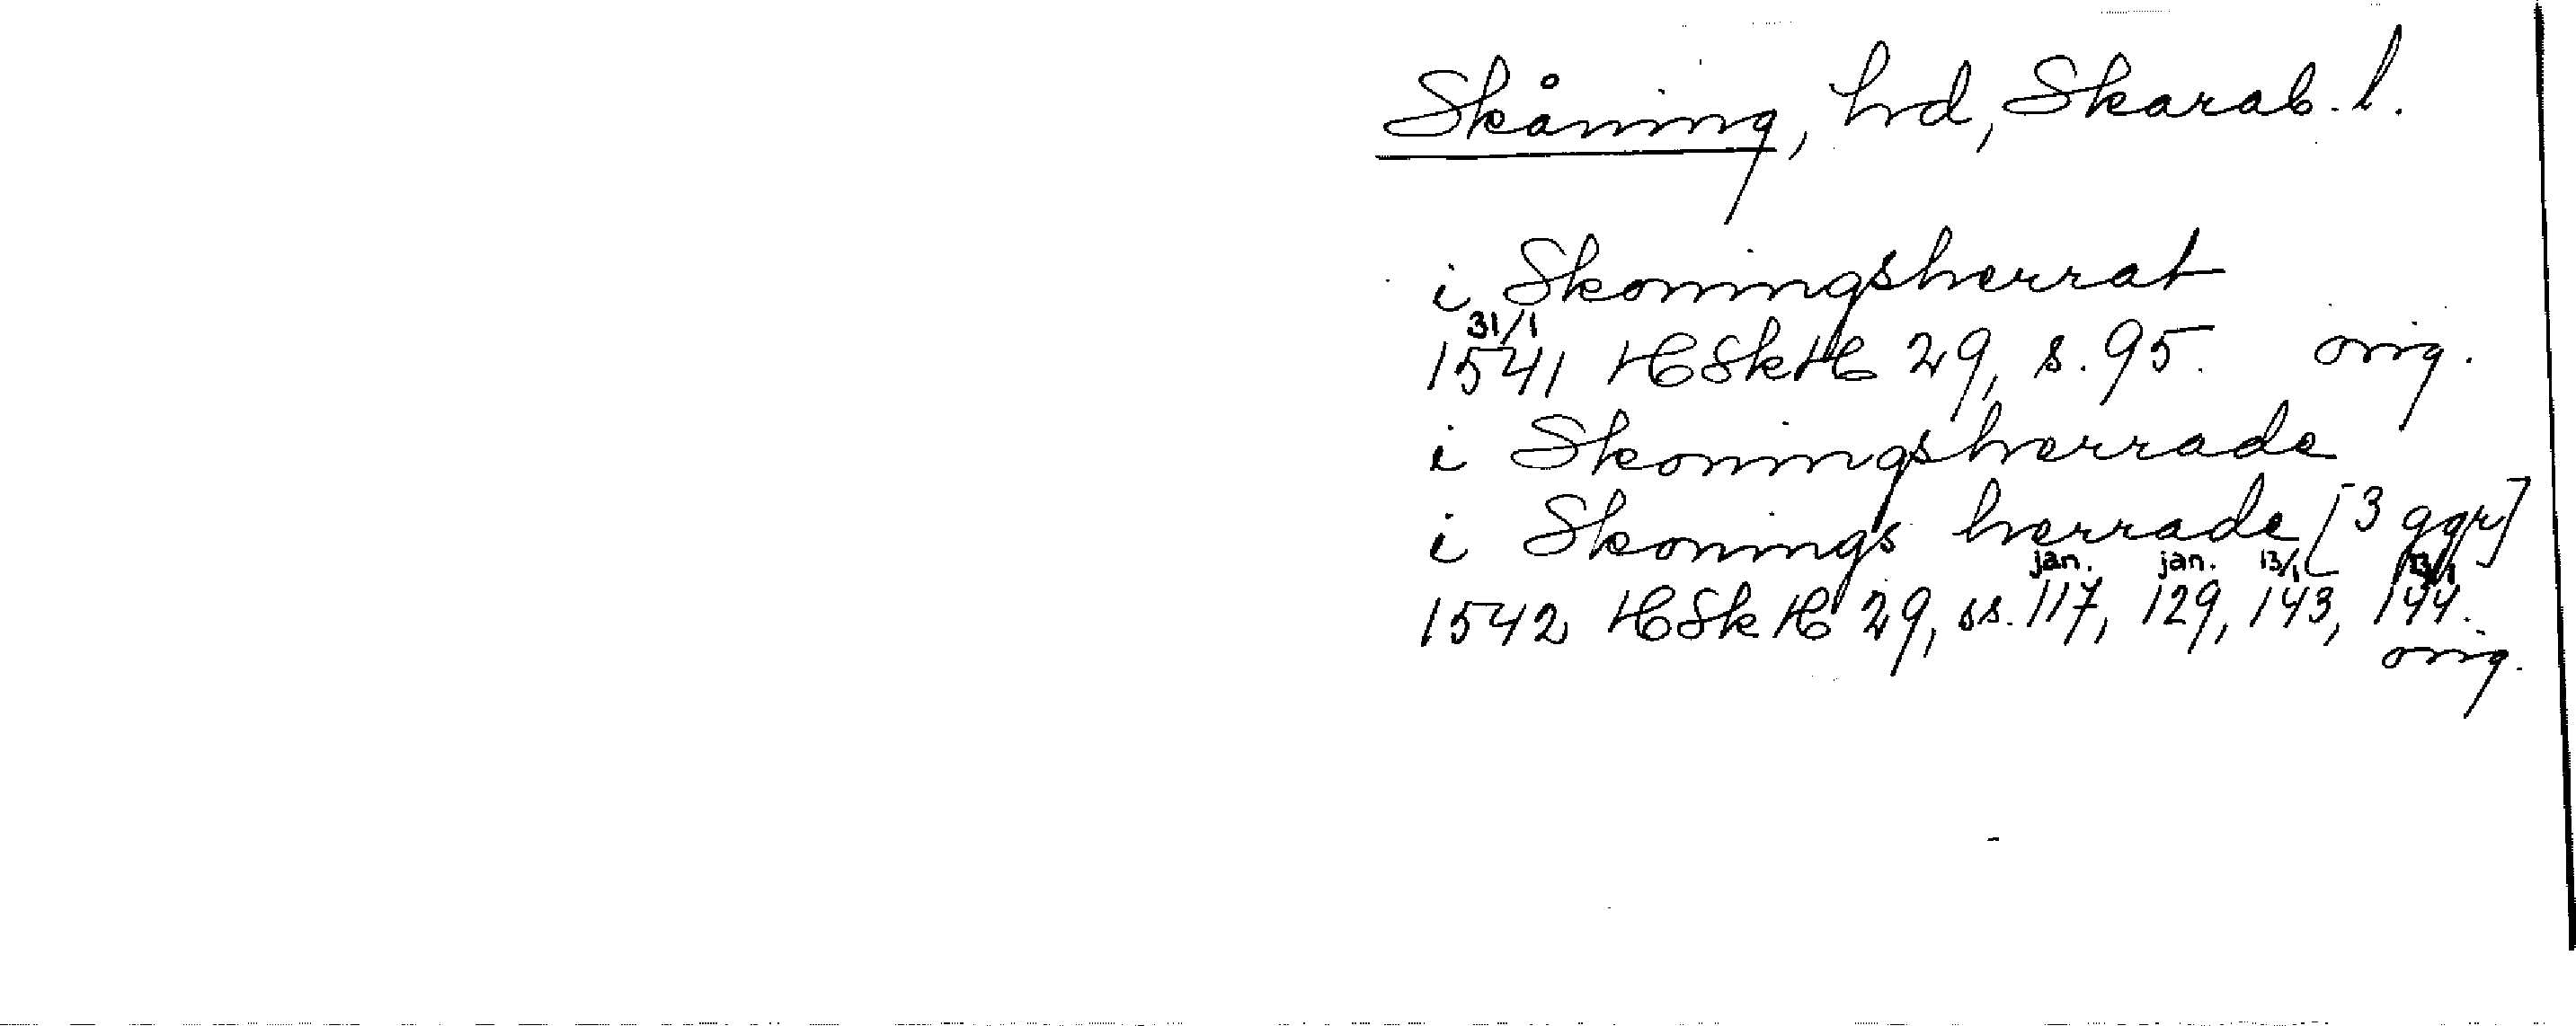 Skåning, hd, Skarab. l.
i Skoningsherrat
31/1
1541 HSkH 29, s. 95. orig.
i Skoningsherrade
i Skonings herrade [3 ggr]
jan. jan. 13/1 13/1
1542 HSkH 29, ss. 117, 129, 143, 144.
orig.